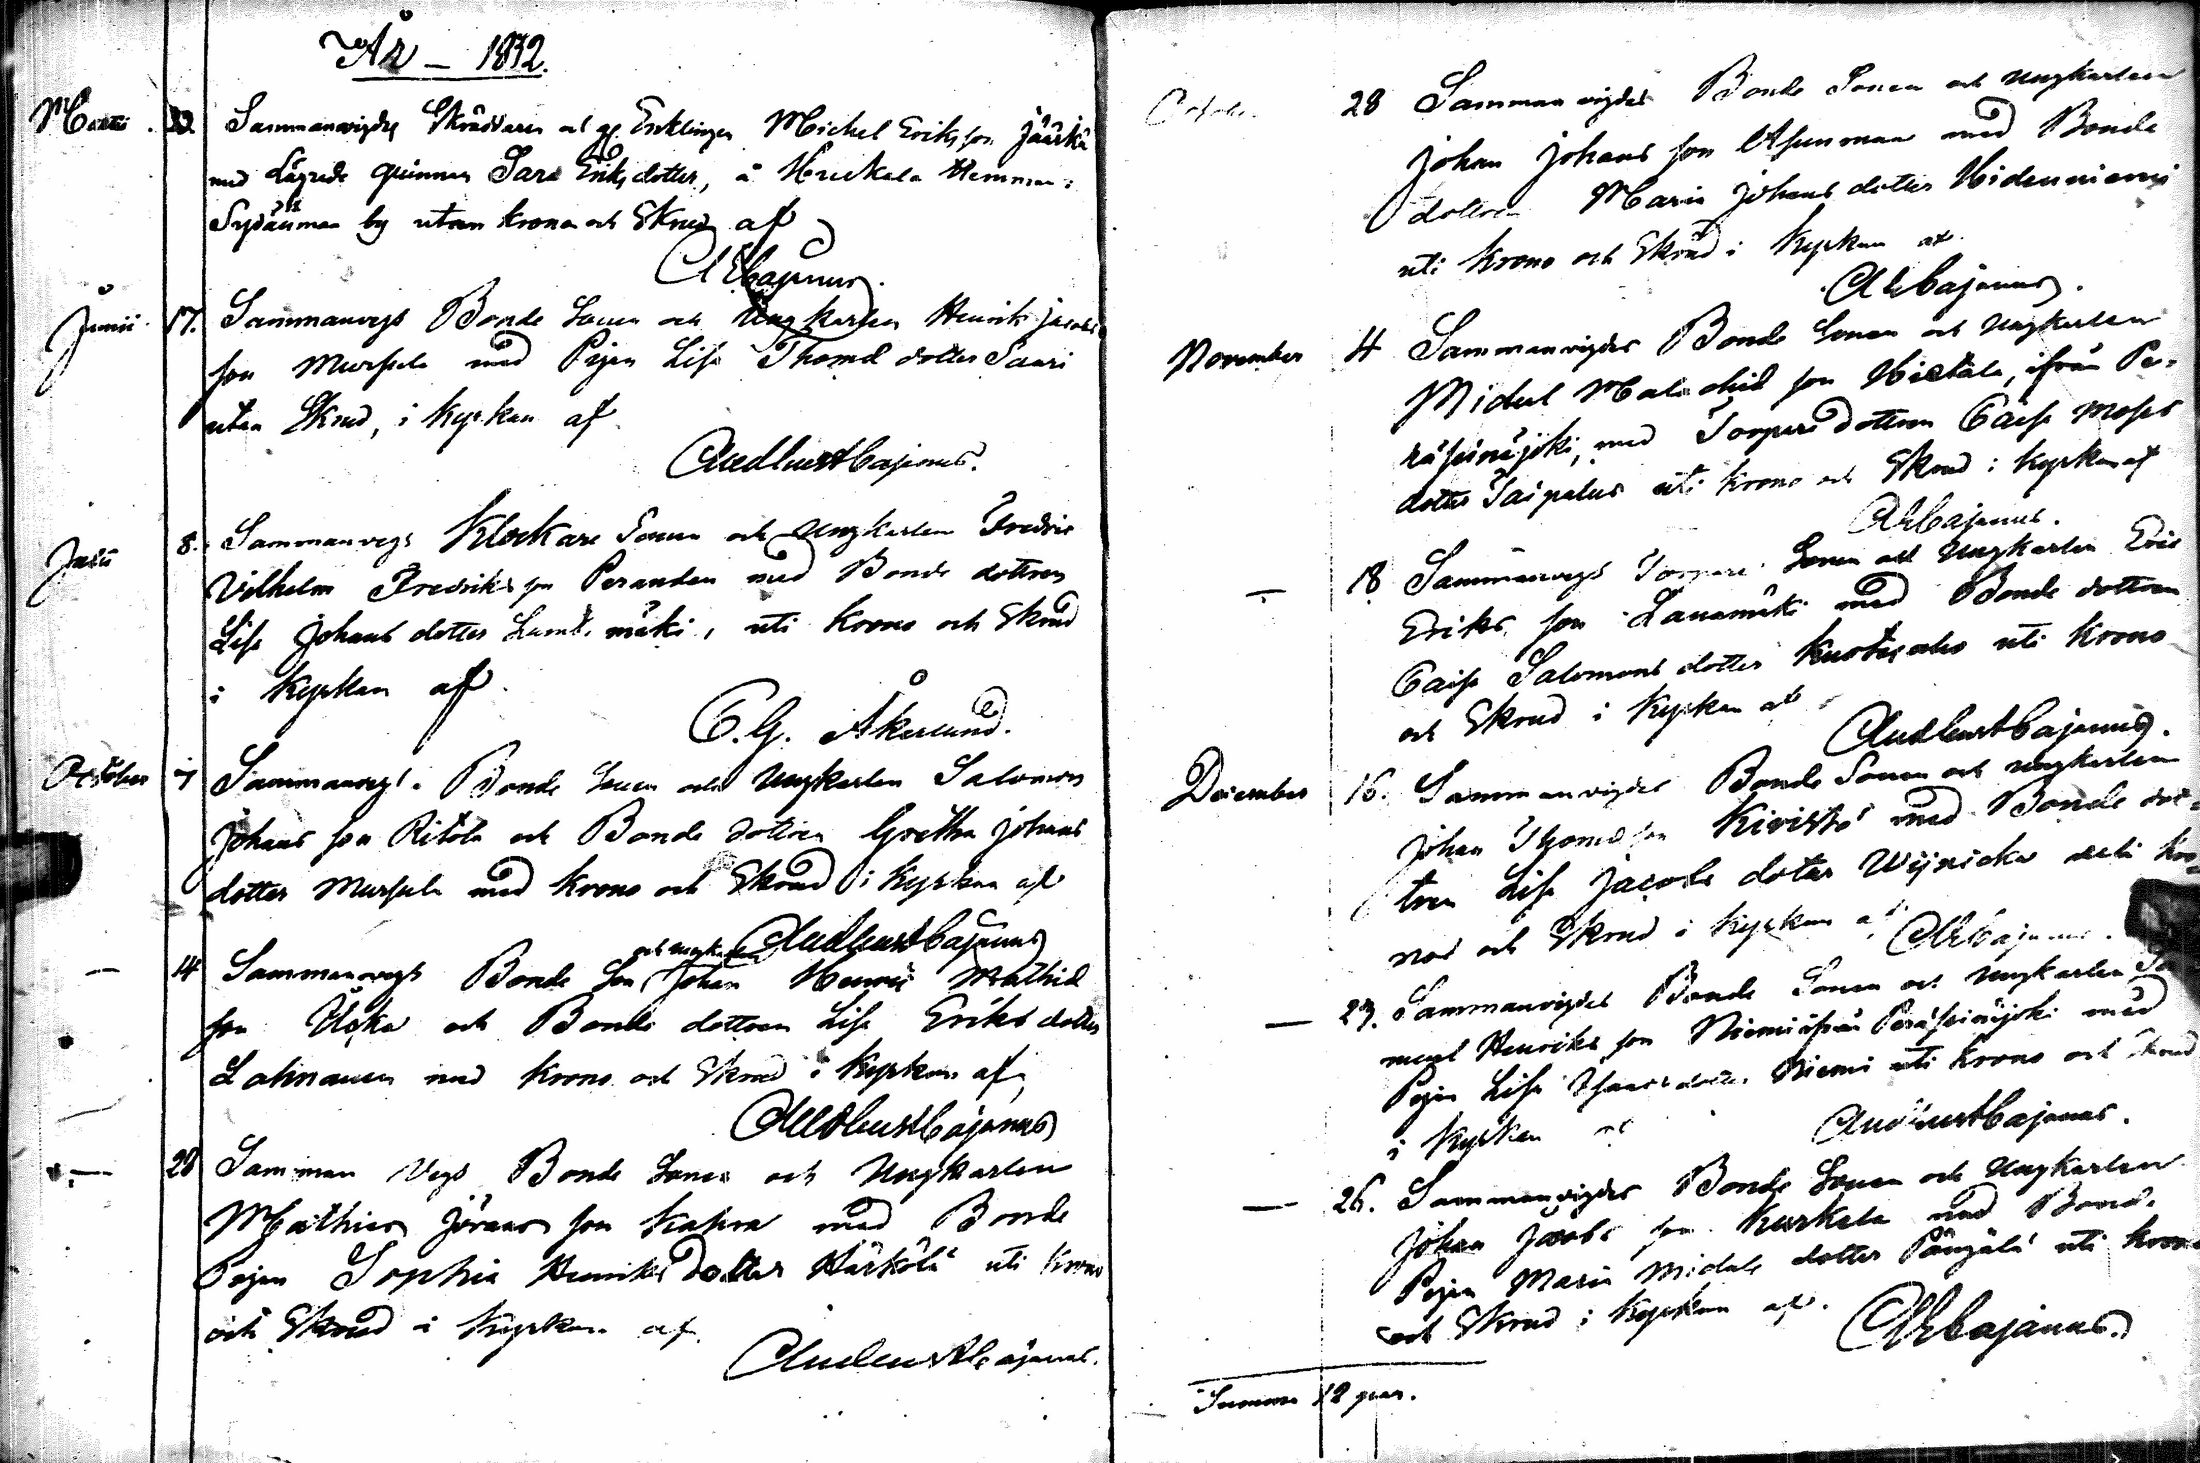 År – 1832.
Martii 22. Sammanvigdes Skräddaren och Enklingen Michel Eriks son Jäärkä
med Lägrede qvinnan Sara Eriks dotter, å Hemman
Sydänmaa by utan krona och Skrud af
AECajanus.
Junii 17. Sammanvegs Bonde Sonen och Ungkarlen Henrik Jacobs
son Mursula med Pigan Lisa Thomæ dotter Saari
utan Skrud, i Kyrkan af
Aud Ernst Cajanus.
Julii 8. Sammanvegs Klockare Sonen och Ungkarlen Fredric
Vilhelm Fredriks son Perander med Bonde dottren
Lisa Johans dotter mäki, uti Krono och Skrud
i Kyrkan af
C.G. Åkerlund.
October 7 Sammanvegs Bonde Sonen och Ungkarlen Salomon
Johans son Ritola och Bonde dottren Gretha Johans
dotter Mursula med Krono och Skrud i Kyrkan af
Aud Ernst Cajanus
och ungkarlen
— 14 Sammanvegs Bonde Son Johan Henric Mathiæ
son och Bonde dottren Lisa Eriks dotter
Lahnanen med Krono och Skrud i Kyrkan af
Aud Ernst Cajanus
— 28 Samman Vegs Bonde Sonen och Ungkarlen
Mathias Jörans son Kahra med Bonde
Pigan Sophia Henriks Dotter Härkölä uti Krono
och Skrud i Kyrkan af
Aud Ernst Cajanus.
October 28 Sammanvigdes Bonde Sonen och Ungkarlen
Johan Johans son Asunmaa med Bonde
dottren Maria Johans dotter Hidenniemi
uti Krono och Skrud i Kyrkan af
AECajanus.
November 4 Sammanvigdes Bonde Sonen och Ungkarlen
Michel Malachiæ son Hietala, ifrån Pe-
räseinäjoki, med Torpare dottren Caisa Moses
dotter Taipalus uti Krono och Skrud i Kyrkan af
AECajanus.
— 18 Sammanvegs Torpare Sonen och Ungkarlen Eric
Eriks son Lanamäki med Bonde dottren
Caisa Salomons dotter uti Krono
och Skrud i Kyrkan af
Aud Ernst Cajanus.
December 16. Sammanvigdes Bonde Sonen och ungkarlen
Johan Thomæ son Kivistö med Bonde dot-
tren Lisa Jacobs dotter uti Kro-
no och Skrud i Kyrkan af AECajanus.
— 23. Sammanvigdes Bonde Sonen och Ungkarlen Sa
muel Henriks son Niemi ifrån Peräseinäjoki med
Pigan Lisa dotter Niemi uti Krono och Skrud
i Kyrkan af Aud Ernst Cajanus.
— 26. Sammanvigdes Bonde Sonen och Ungkarlen
Johan Jacobs son Kurkela med Bonde
Pigan Maria Michels dotter uti Krono
och Skrud i Kyrkan af. AECajanus.
Summa 12 par.